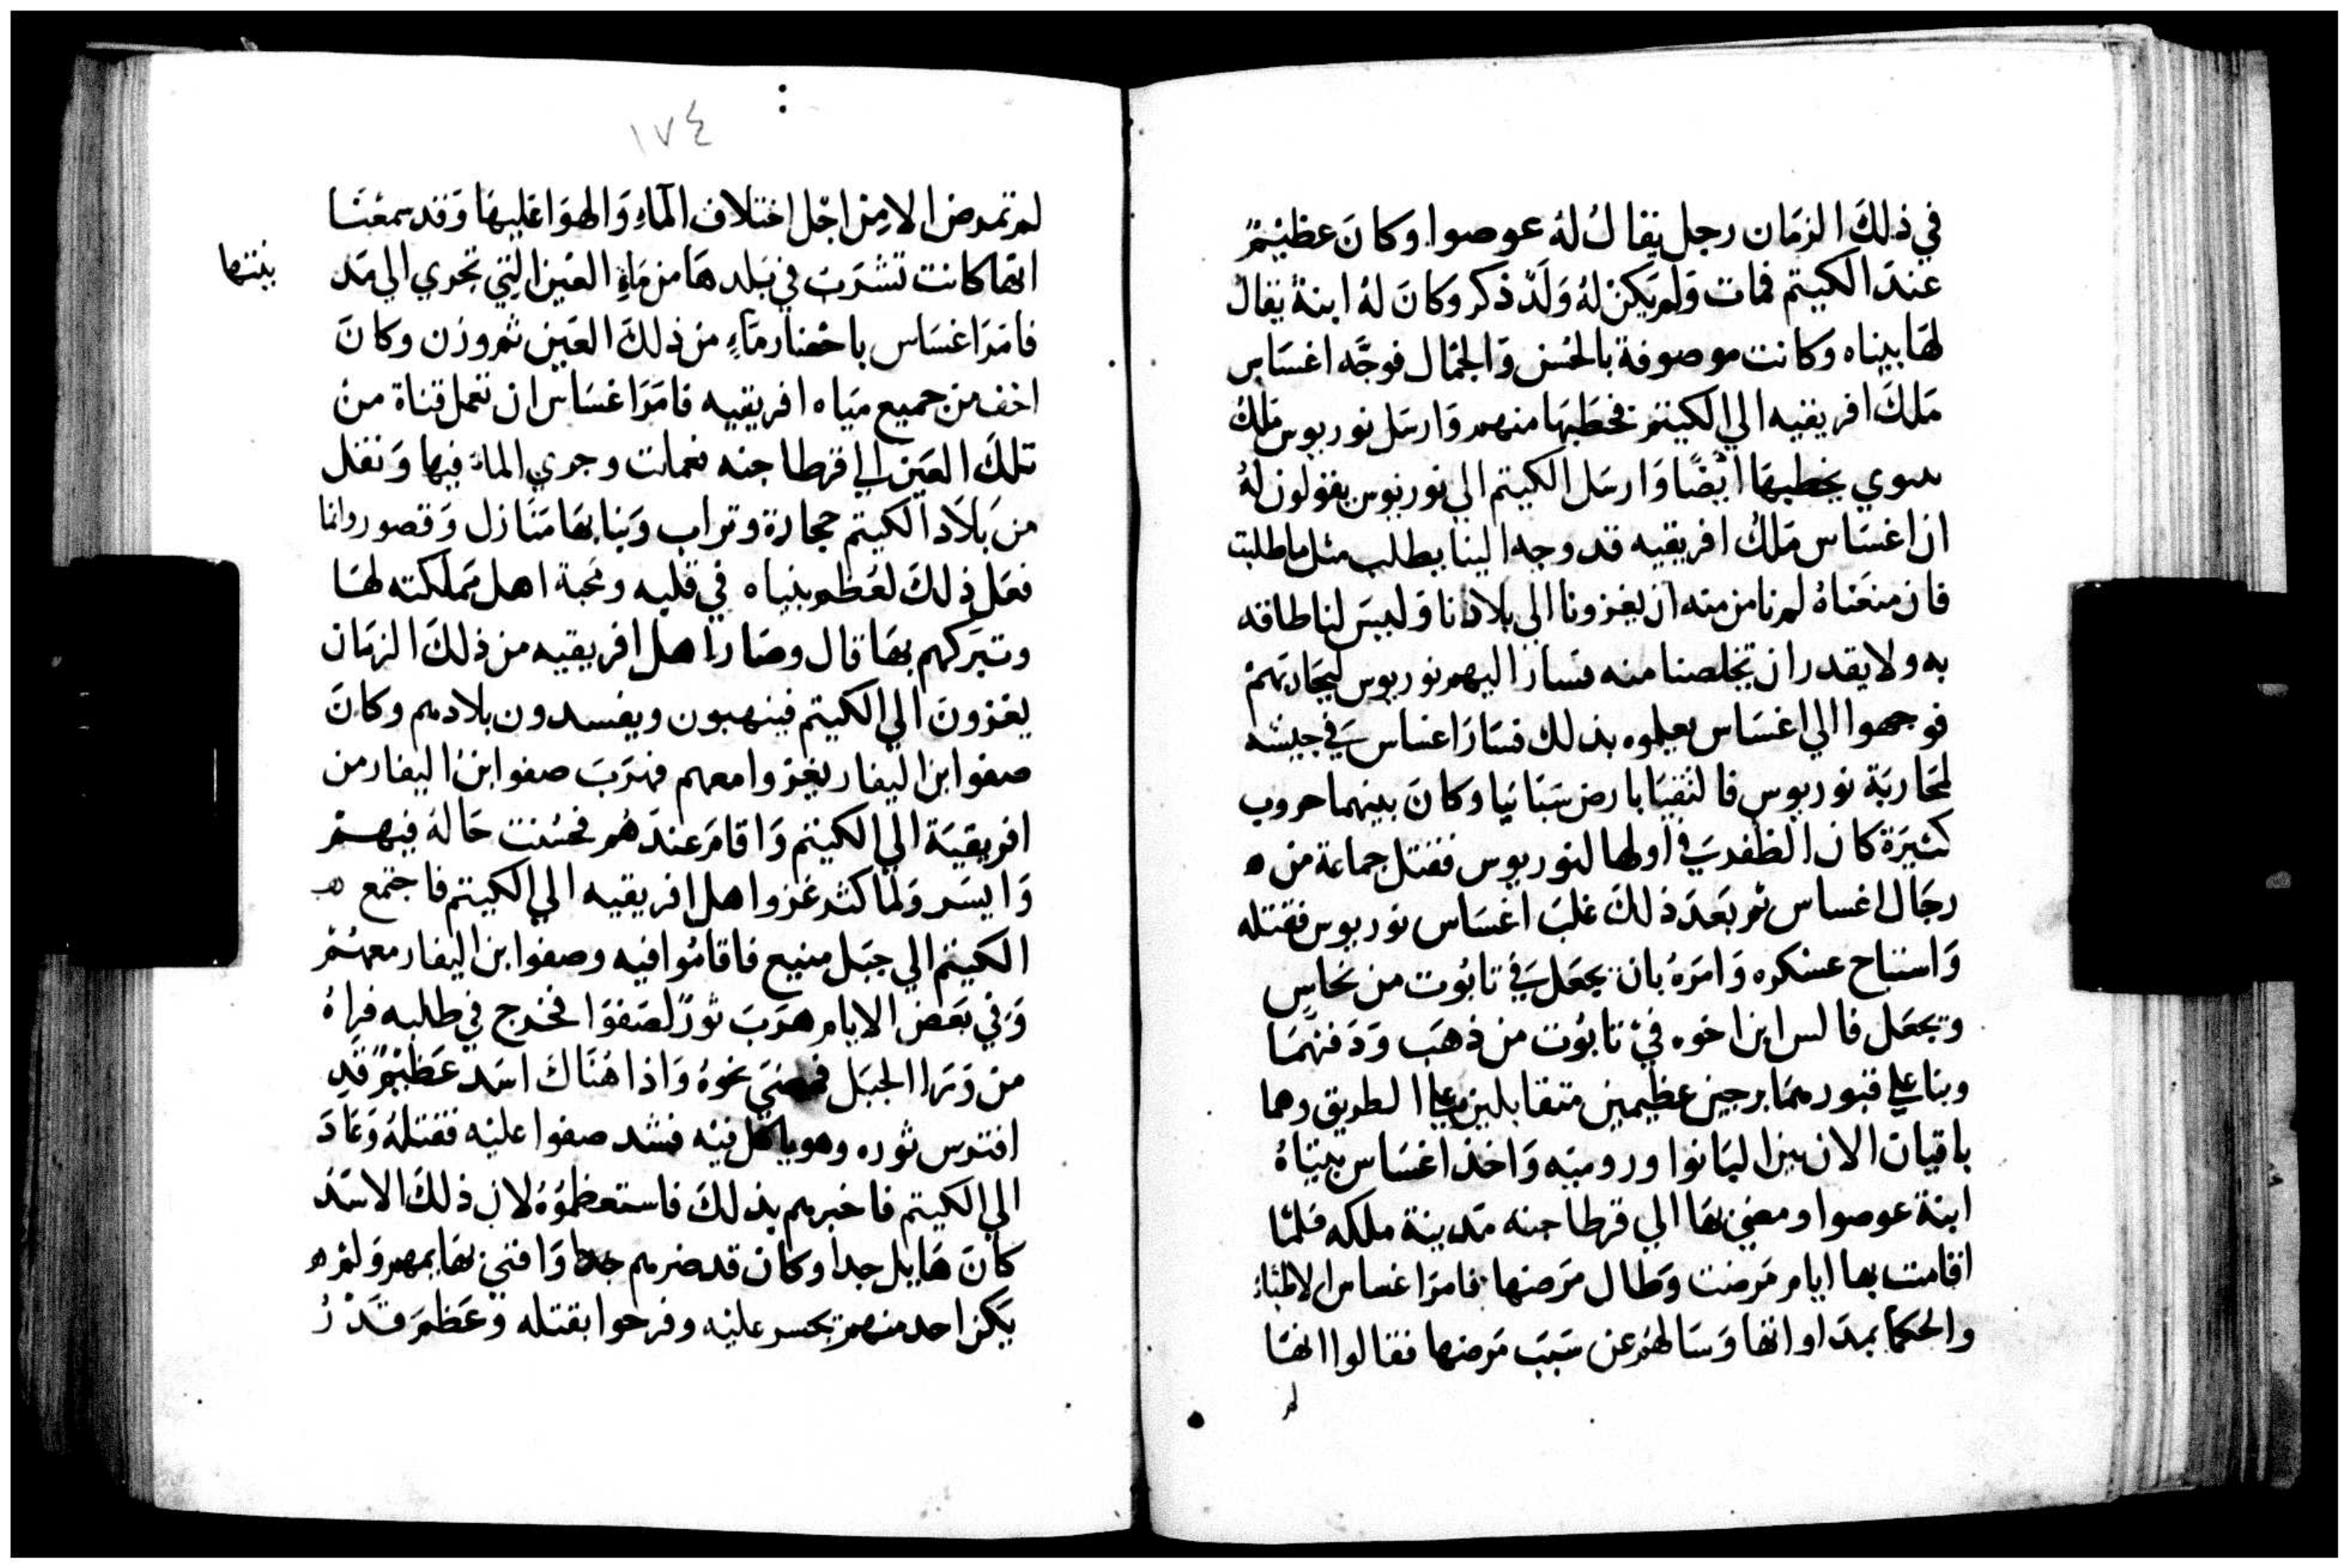 في ذلك الزمان رجل يقال له عوصوا وكان عظيمٌ
عند الكيتم فمات ولم يكن له ولد ذكر وكان له ابنة يقال
لها بيناه وكانت موصوفة بالحسن والجمال فوجّه اغساس
ملك افريقيه الي الكيتم فخطبها منهم وارسل نوربوس ملك
سوي يخطبها ايضًا وارسل الكيتم الي نوربوس يقولون له
ان اغساس ملك افريقيه قد وجه الينا يطلب مثل ما طلبت
فان منعناه لم نامن منه ان يغزونا الي بلادنا وليس لنا طاقه
به ولا يقدر ان تخلصنا منه فسار اليهم نوربوس ليحاربهم
فوجهوا الي اغساس يعلموه بذلك فسار اغساس في جيشه
لمحاربة نوربوس فالتقيا بارض سبانيا وكان بينهما حروب
كثيرة كان الظفر في اولها لنوربوس فقتل جماعة من ه
رجال اغساس ثم بعد ذلك غلب اغساس نوربوس فقتله
واستباح عسكره وامره بان يجعل في تابوت من نحاس
ويجعل فالس ابن اخوه في تابوت من ذهب ودفنهما
وبنا علي قبورهما برجين عظيمين متقابلين علي الطريق وهما
باقيان الان بين البانوا ورومية واخذ اغساس بيناهُ
ابنة عوصوا ومضي بها الي قرطاجنه مدينة ملكه فلما
اقامت بها ايام مرضت وطال مرضها فامر اغساس الاطباء
والحكما بمداواتها وسالهم عن سبب مرضها فقالوا انها
لم
١٧٤
لم تمرض الا من اجل اختلاف الماء والهوا عليها وقد سمعنا
انها كانت تشرب في بلدها من ماء العين التي تجري الي مد بنتها
فامر اغساس باحضار ماء من ذلك العين ثم وزن وكان
اخف من جميع مياه افريقيه فامر اغساس ان تعمل قناة من
تلك العين الي قرطاجنه فعملت وجري الماء فيها ونقل
من بلاد الكيتم حجارة وتراب وبنا بها منازل وقصور وانما
فعل ذلك لعظم بنياه في قلبه ومحبة اهل مملكته لها
وتبركهم بها قال وصار اهل افريقيه من ذلك الزمان
يغزون الي الكيتم فينهبون ويفسدون بلادهم وكان
صفوا ابن اليفار يغزوا معهم فهرب صفوا ابن اليفار من
افريقية الي الكيتم واقام عندهم فحسنت حاله فيهم
وايسر ولما كثر غزوا اهل افريقيه الي الكيتم فاجتمع ه
الكيتم الي جبل منيع فاقاموا فيه وصفوا ابن اليفار معهم
وفي بعض الايام هرب ثورٌ لصفوا فخرج في طلبه فراهُ
من ورا الجبل فمضي نحوه واذا هناك اسد عظيمٌ قد
افترس ثوره وهو ياكل فيه فشد صفوا عليه فقتله وعاد
الي الكيتم فاخبرهم بذلك فاستعظموه لان ذلك الاسد
كان هايل جدا وكان قد ضرهم جدا وافني بهايمهم ولم ه
يكن احد منهم يجسر عليه وفرحوا بقتله وعظم قدرُ